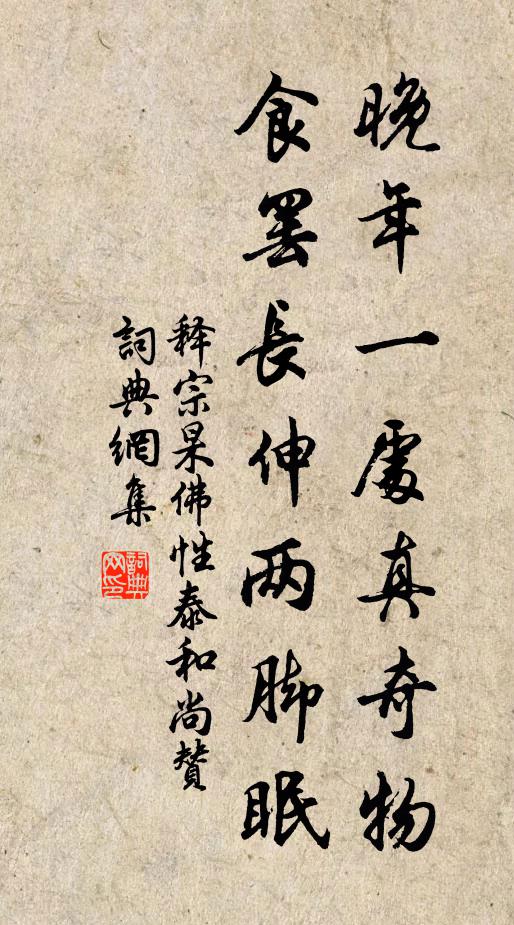 晚年一處真奇物
食罢長伸两脚眠
释宗杲佛性泰和尚贊
詞典網集
詞典网印